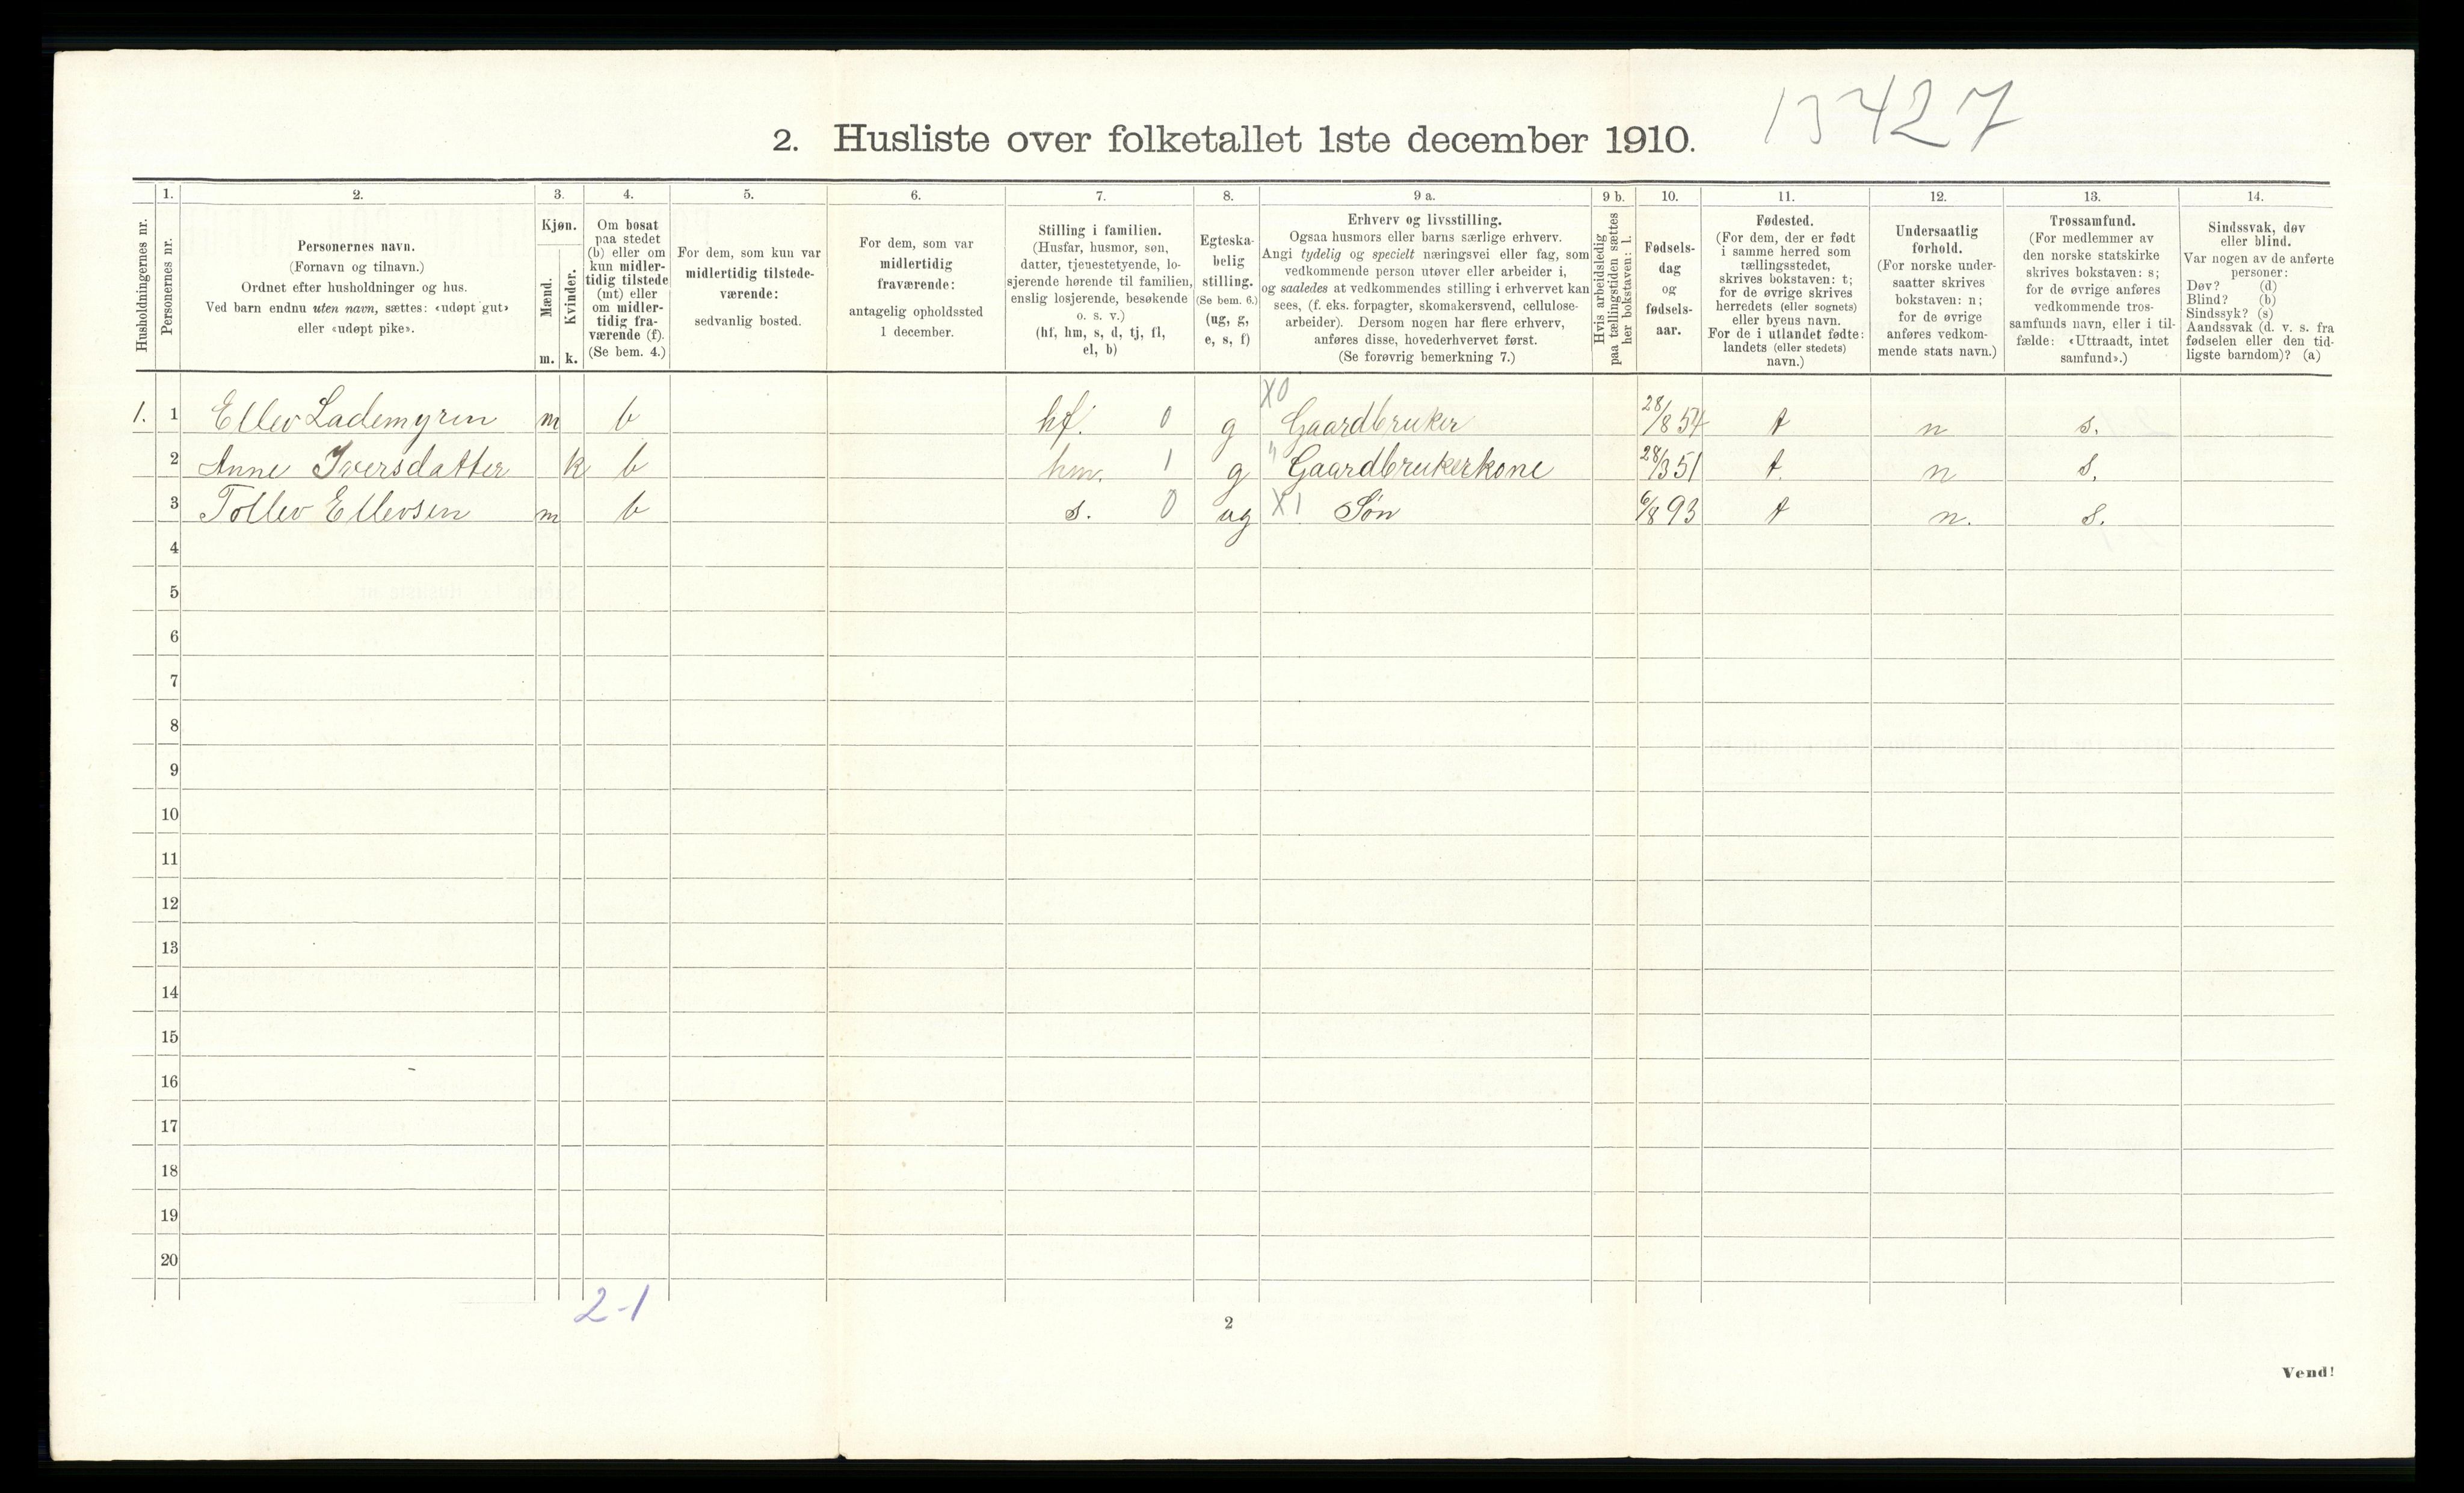 13427
2. Husliste over folketallet 1ste december 1910.
1. 2. 3. 4. 5. 6. 7. 8. 9 a. 9 b. 10. 11. 12. 13. 14.
Husholdningernes nr.
Personernes nr.
Personernes navn.
(Fornavn og tilnavn.)
Ordnet efter husholdninger og hus.
Ved barn endnu uten navn, sættes: «udøpt gut»
eller «udøpt pike».
Kjøn.
Mænd.
Kvinder.
m. k.
Om bosat
paa stedet
(b) eller om
kun midler-
tidig tilstede
(mt) eller
om midler-
tidig fra-
værende (f).
(Se bem. 4.)
For dem, som kun var
midlertidig tilstede-
værende:
sedvanlig bosted.
For dem, som var
midlertidig
fraværende:
antagelig opholdssted
1 december.
Stilling i familien.
(Husfar, husmor, søn,
datter, tjenestetyende, lo-
sjerende hørende til familien,
enslig losjerende, besøkende
o. s. v.)
(hf, hm, s, d, tj, fl,
el, b)
Egteska-
belig
stilling.
(Se bem. 6.)
(ug, g,
e, s, f)
Erhverv og livsstilling.
Ogsaa husmors eller barns særlige erhverv.
Angi tydelig og specielt næringsvei eller fag, som
vedkommende person utøver eller arbeider i,
og saaledes at vedkommendes stilling i erhvervet kan
sees, (f. eks. forpagter, skomakersvend, cellulose-
arbeider). Dersom nogen har flere erhverv,
anføres disse, hovederhvervet først.
(Se forøvrig bemerkning 7.)
Hvis arbeidsledig
paa tællingstiden sættes
her bokstaven: l.
Fødsels-
dag
og
fødsels-
aar.
Fødested.
(For dem, der er født
i samme herred som
tællingsstedet,
skrives bokstaven: t;
for de øvrige skrives
herredets (eller sognets)
eller byens navn.
For de i utlandet fødte:
landets (eller stedets)
navn.)
Undersaatlig
forhold.
(For norske under-
saatter skrives
bokstaven: n;
for de øvrige
anføres vedkom-
mende stats navn.)
Trossamfund.
(For medlemmer av
den norske statskirke
skrives bokstaven: s;
for de øvrige anføres
vedkommende tros-
samfunds navn, eller i til-
fælde: «Uttraadt, intet
samfund».)
Sindssvak, døv
eller blind.
Var nogen av de anførte
personer:
Døv? (d)
Blind? (b)
Sindssyk? (s)
Aandssvak (d. v. s. fra
fødselen eller den tid-
ligste barndom)? (a)
1. 1 Ellev Lademyren m b hf. 0 g X0 Gaardbruker 28/8 54 t n s.
2 Anne Iversdatter k b hm. 1 g " Gaardbrukerkone 28/3 51 t. n s.
3 Tollev Ellevsen m b s. 0 ug X1 Søn 6/8 93 t n. s.
4
5
6
7
8
9
10
11
12
13
14
15
16
17
18
19
20
2-1
2
Vend!